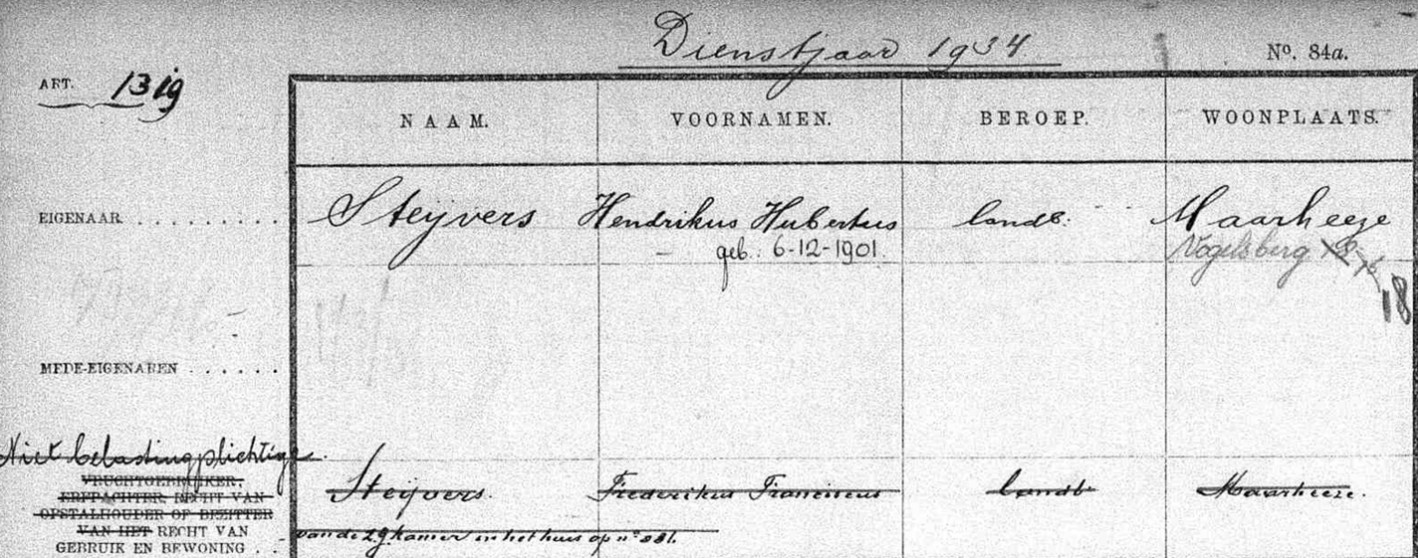 Dienstjaar 1934
Nº. 84a.
ART. 1319
NAAM. VOORNAMEN. BEROEP. WOONPLAATS.
EIGENAAR Steijvers Hendrikus Hubertus landb. Maarheeze
geb. 6-12-1901. Vogelsberg
18
MEDE-EIGENAREN
Niet belastingplichtige
VRUCHTGEBRUIKER, Steijvers. Frederikus Franciscus landb Maarheeze.
ERFPACHTER, RECHT VAN
OPSTALHOUDER OF BEZITTER
VAN HET RECHT VAN van de z.g. kamer in het huis op nº 381.
GEBRUIK EN BEWONING